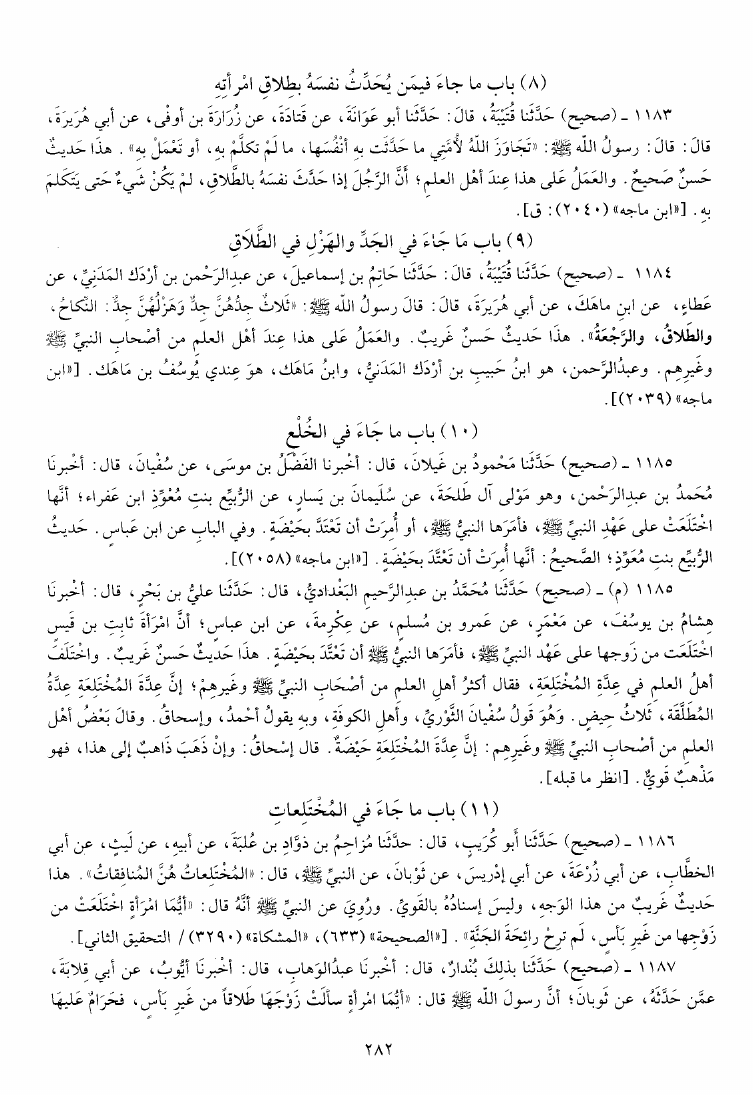 (٨) باب ما جاءَ فيمَن يُحَدِّثُ نفسَهُ بطِلاقِ امْرأتِهِ
١١٨٣ ـ (صحيح) حَدَّثَنا قُتَيْبَةُ، قالَ: حَدَّثَنا أبو عَوَانَةَ، عن قَتَادَةَ، عن زُرَارَةَ بن أوفَى، عن أبي هُرَيرَةَ،
قالَ: قالَ: رسولُ اللّه ﷺ: «تَجَاوَزَ اللّهُ لأُمَّتِي ما حَدَّثَت بِهِ أنْفُسَها، ما لَمْ تَكلَّمْ بِهِ، أو تَعْمَلْ بِهِ». هذا حَديثٌ
حَسنٌ صَحيحٌ. والعَمَلُ عَلى هذا عِندَ أهْلِ العلمِ؛ أنَّ الرَّجُلَ إذا حَدَّثَ نفسَهُ بالطَّلاقِ، لمْ يَكُنْ شَيءٌ حَتى يَتَكلمَ
بهِ. [«ابن ماجه» (٢٠٤٠): ق].
(٩) باب مَا جَاءَ في الجَدِّ والهَزْلِ في الطَّلاَقِ
١١٨٤ ـ (صحيح) حَدَّثَنا قُتَيْبَةُ، قالَ: حَدَّثَنا حَاتِمُ بن إسماعيلَ، عن عبدِالرَّحْمن بن أرْدَكَ المَدَنِيِّ، عن
عَطاءٍ، عن ابنِ ماهَكَ، عن أبي هُرَيرَةَ، قالَ: قالَ رسولُ اللّه ﷺ: «ثَلاثٌ جِدُّهُنَّ جِدٌّ وَهَزْلُهُنَّ جِدٌّ: النِّكاحُ،
والطَلاقُ، والرَّجْعَةُ». هذا حَديثٌ حَسنٌ غَريبٌ. والعَمَلُ عَلى هذا عِندَ أهْلِ العلمِ من أصْحابِ النبيِّ ﷺ
وغَيرِهِم. وعبدُالرَّحمن، هو ابنُ حَبيبِ بن أرْدَكَ المَدَنيُّ، وابنُ مَاهَك، هوَ عِندي يُوسُفُ بن مَاهَك. [«ابن
ماجه» (٢٠٣٩)].
(١٠) باب ما جَاءَ في الخُلْعِ
١١٨٥ ـ (صحيح) حَدَّثَنا مَحْمودُ بن غَيلانَ، قال: أخْبرنا الفَضْلُ بن موسَى، عن سُفْيانَ، قال: أخْبرنَا
مُحَمدُ بن عبدِالرَّحْمن، وهو مَوْلى آل طَلحَةَ، عن سُلَيمانَ بن يَسارٍ، عن الرُبيِّعِ بنتِ مُعْوِّذِ ابن عَفراء؛ أنَّها
اخْتَلَعَتْ على عَهْدِ النبيِّ ﷺ، فأمَرَها النبيُّ ﷺ، أو أُمِرَتْ أن تَعْتَدَّ بحَيْضَةٍ. وفي البابِ عن ابن عَباسٍ. حَديثُ
الرُّبيِّعِ بنتِ مُعَوِّذٍ؛ الصَّحيحُ: أنَّها أُمِرَتْ أن تَعْتَّدَ بحَيْضَةٍ. [«ابن ماجه» (٢٠٥٨)].
١١٨٥ (م) ـ (صحيح) حَدَّثَنا مُحَمَّدُ بن عبدِالرحيمِ البَغْداديُّ، قال: حَدَّثَنا عليُّ بن بَحْرٍ، قال: أخْبرنَا
هِشامُ بن يوسُفَ، عن مَعْمَرٍ، عن عَمرو بن مُسلمٍ، عن عِكْرِمةَ، عن ابن عباسٍ؛ أنَّ امْرَأةَ ثابتِ بن قَيسٍ
اخْتَلَعَت من زَوجها على عَهْد النبيِّ ﷺ، فأمَرَها النبيُّ ﷺ أن تَعْتَّدَ بحَيْضَةٍ. هذا حَديثٌ حَسنٌ غَريبٌ. واختَلَفَ
أهلُ العلمِ في عِدَّةِ المُخْتَلِعَةِ، فقال أكثرُ أهلِ العلمِ من أصْحَابِ النبيِّ ﷺ وغَيرِهِمْ؛ إنَّ عِدَّةَ المُخْتَلِعَةِ عِدَّةُ
المُطَلَّقَة، ثَلاثُ حِيضٍ. وَهُوَ قَولُ سُفْيانَ الثَّوْريِّ، وأهلِ الكوفَةِ، وبهِ يقولُ أحْمدُ، وإسحاقُ. وقالَ بَعْضُ أهْل
العلمِ من أصْحابِ النبيِّ ﷺ وغَيرِهِم: إنَّ عِدَّةَ المُخْتَلِعَةِ حَيْضَةٌ. قال إسْحاقُ: وإنْ ذَهَبَ ذَاهبٌ إلى هذا، فهو
مَذْهبٌ قَويٌّ. [انظر ما قبله].
(١١) باب ما جَاءَ في المُخْتَلِعاتِ
١١٨٦ ـ (صحيح) حَدَّثَنا أبو كُرَيبٍ، قال: حدَّثَنا مُزاحِمُ بن ذوَّادِ بن عُلبَةَ، عن أبيهِ، عن لَيثٍ، عن أبي
الخطَّابِ، عن أبي زُرْعَةَ، عن أبي إدْريسَ، عن ثَوْبانَ، عن النبيِّ ﷺ، قال: «المُخْتَلِعاتُ هُنَّ المُنافِقاتُ». هذا
حَديثٌ غَريبٌ من هذا الوَجهِ، وليسَ إسنادُهُ بالقَويِّ. ورُوِيَ عن النبيِّ ﷺ أنَّهُ قال: «أيُّمَا امْرَأةٍ اخْتَلَعَتْ من
زَوْجِها من غَيرِ بَأسٍ، لَم تَرِحْ رائِحَةَ الجَنَّةِ». [«الصحيحة» (٦٣٣)، «المشكاة» (٣٢٩٠) / التحقيق الثاني].
١١٨٧ ـ (صحيح) حَدَّثَنا بذلِكَ بُنْدارٌ، قال: أخْبرنَا عبدُالوَهابِ، قال: أخْبرنَا أيُّوبُ، عن أبي قِلابَةَ،
عمَّن حَدَّثَهُ، عن ثَوبانَ؛ أنَّ رسولَ اللّه ﷺ قال: «أيُّمَا امْرأةٍ سألَتْ زَوْجَها طَلاقاً من غَيرِ بأسٍ، فَحَرَامٌ عليهَا
٢٨٢